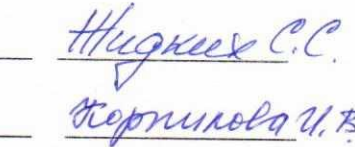 Жидких С.С.
Корнилова И.В.